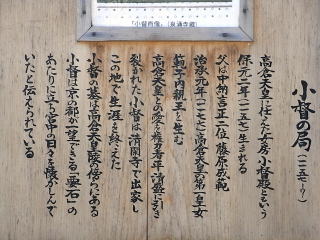 「小督画像」（泉涌寺蔵）
小督の局（一一五七～？）
高倉天皇に仕えた女房 小督殿という
保元二年（一一五七）生まれる
父は中納言正二位 藤原成範
治承元年（一一七七）高倉天皇の第二皇女
範子内親王を生む
高倉天皇との愛を権力者平清盛に引き
裂かれた小督は清閑寺で出家し
この地で生涯を終えた
小督の墓は高倉天皇陵の傍らにある
小督は京の都が一望できる「要石」の
あたりに立ち宮中の日々を懐かしんで
いたと伝えられている